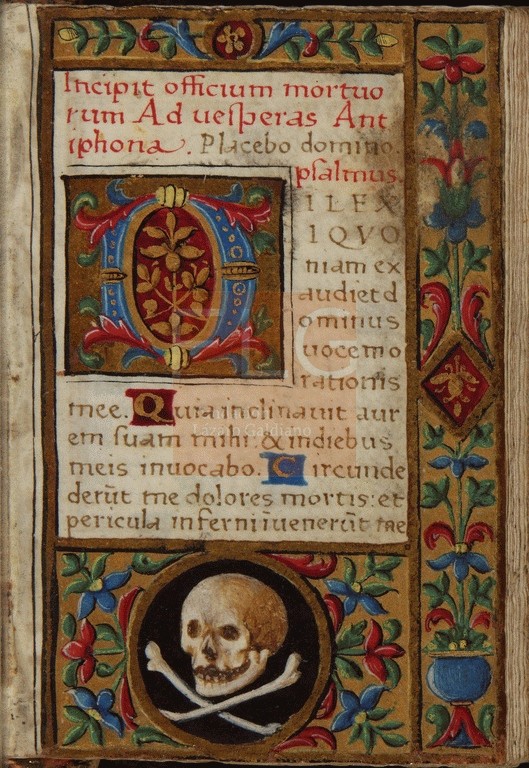 Incipit officium mortuo
rum Ad uesperas Ant
iphona. Placebo domino.
psalmus.
DILEX
IQVO
niam ex
audiet d
ominus
uocem o
rationis
mee. Quia inclinauit aur
em suam mihi: & indiebus
meis inuocabo. Circunde
derūt me dolores mortis: et
pericula inferni īuenerūt me
Lázaro Galdiano